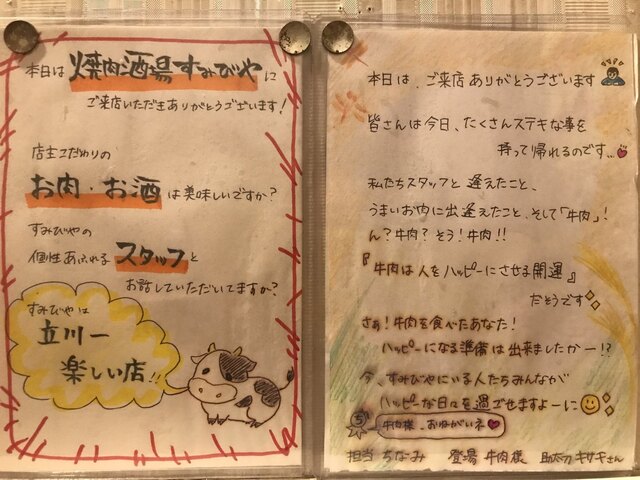 本日は 焼肉酒場すみびや に
ご来店いただきありがとうございます!
店主こだわりの
お肉・お酒 は美味しいですか?
すみびやの
個性あふれる スタッフ と
お話していただいてますか?
すみびやは
立川一
楽しい店!!
本日は、ご来店ありがとうございます
皆さんは今日、たくさんステキな事を
持って帰れるのです…
私たちスタッフと逢えたこと、
うまいお肉に出逢えたこと、そして「牛肉」!
ん?牛肉?そう!牛肉!!
『牛肉は人をハッピーにさせる開運』
だそうです
さぁ!牛肉を食べたあなた!
ハッピーになる準備は出来ましたかー!?
今、すみびやにいる人たちみんなが
ハッピーな日々を過ごせますよーに
牛肉様、おねがいネ
担当 ちなみ 登場 牛肉様 助太刀 キサキさん